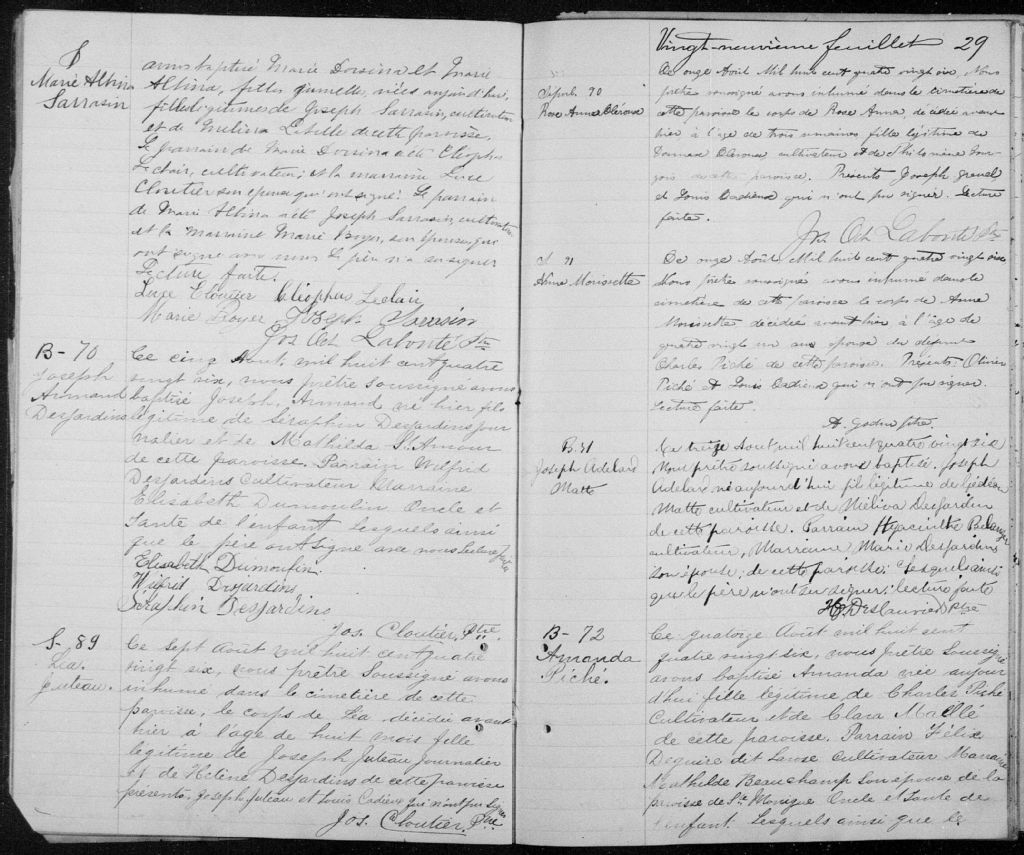 S
Marie Albina
Sarrasin
avons baptisé Marie Dorsina et Marie
Albina, filles jumelles, nées aujourd'hui,
filles légitimes de Joseph Sarrasin, cultivateur
et de Mélina Labelle de cette paroisse.
Le parrain de Marie Dorsina a été Cléophas
Leclair, cultivateur; et la marraine Luce
Cloutier son épouse qui ont signé. Le parrain
de Marie Albina a été Joseph Sarrasin, cultivateur
et la marraine Marie Boyer, son épouse, qui
ont signé avec nous Le père n'a su signer
Lecture faite.
Luce Cloutier Cléophas Leclair
Marie Boyer Joseph Sarrasin
Jos Oct Labonté Ptre
B- 70
Joseph
Armand
Desjardins
Ce cinq Aout, mil huit cent quatre
vingt six, nous prêtre soussigné avons
baptisé Joseph, Armand né hier fils
légitime de Séraphin Desjardins jour
nalier et de Mathilda St Amour
de cette paroisse. Parrain Wilfrid
Desjardins Cultivateur Marraine
Elisabeth Dumoulin Oncle et
Tante de l'enfant Lesquels ainsi
que le père ont signé avec nous Lecture faite
Elisabeth Dumoulin
Wilfrid Desjardins
Séraphin Desjardins
Jos. Cloutier, Ptre
S- 89
Léa
Juteau.
Ce Sept Août mil huit cent quatre
vingt six, nous prêtre Soussigné avons
inhumé dans le cimetière de cette
paroisse, le corps de Léa décédée avant
hier à l'âge de huit mois fille
légitime de Joseph Juteau journalier
et de Hélène Desjardins de cette paroisse
présents, Joseph Juteau et Louis Cadieux qui n'ont pu signer
Jos. Cloutier, Ptre
Vingt-neuvième feuillet 29
Sépult. 90
Rose Anna Clérous
Ce onze Août Mil huit cent quatre vingt six, Nous
prêtre soussigné avons inhumé dans le cimetière de
cette paroisse le corps de Rose Anna, décédée avant
hier à l'âge de trois semaines fille légitime de
cultivateur et de Philomène
de cette paroisse. Présents Joseph gravel
et Louis Cadieux qui n'ont pu signer. Lecture
faite.
Jos. Oct Labonté Ptre
S. 91
Anna Morissette
Ce onze Août Mil huit cent quatre vingt six
Nous prêtre soussigné avons inhumé dans le
cimetière de cette paroisse le corps de Anna
Morissette décédée avant hier à l'âge de
quatre vingt un ans épouse du défunt
Charles Piché de cette paroisse. Présents: Olivier
Piché et Louis Cadieux qui n'ont pu signer.
Lecture faite.
ptre.
B. 71
Joseph Adelard
Matte
Ce treize Aout mil huit cent quatre vingt six
Nous prêtre soussigné avons baptisé Joseph
Adelard né aujourd'hui fils légitime de Gédéon
Matte cultivateur et de Mélina Desjardins
de cette paroisse. Parrain Hyacinthe Belanger
cultivateur, Marraine Marie Desjardins
son épouse; de cette paroisse. Lesquels ainsi
que le père n'ont su signer; lecture faite
Deslauriers Ptre
B- 72
Amanda
Piché.
Ce quatorze Août mil huit cent
quatre vingt six, nous prêtre Soussigné
avons baptisé Amanda née aujour
d'hui fille légitime de Charles Piché
Cultivateur et de Clara Maillé
de cette paroisse. Parrain Félix
Deguire dit Larose Cultivateur Marraine
Mathilde Beauchamp Son épouse de la
paroisse de Ste Monique Oncle et Tante de
l'enfant. Lesquels ainsi que le